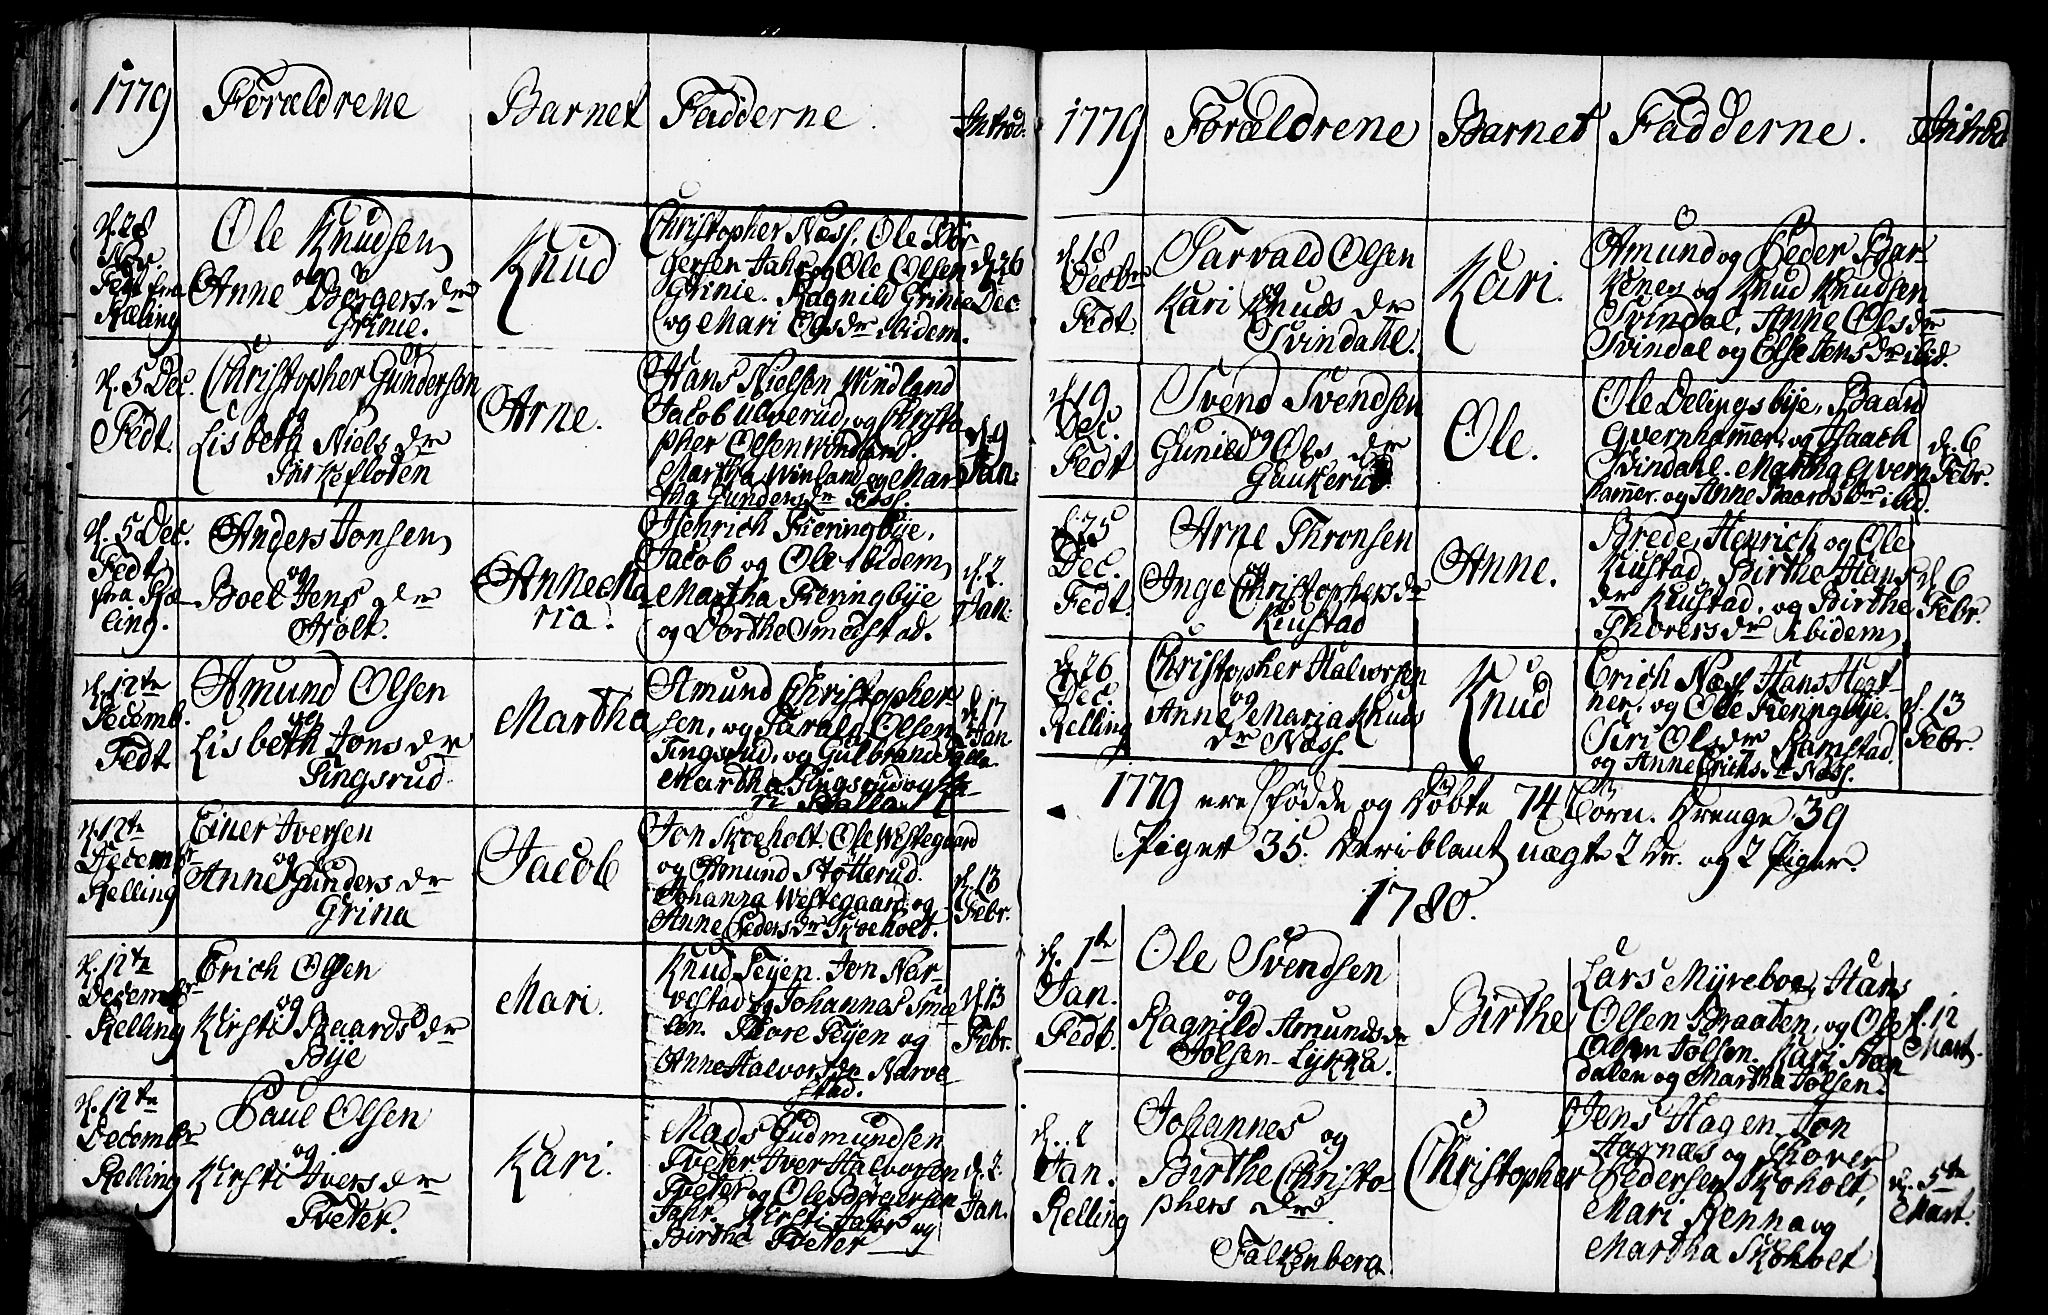 1779 Forældrene Barnet Fadderne. Introd.
d. 28 Nov. Fedt fra Ræling
Ole Knudsen
og
Anne Børgersdr
Grinie.
Knud
Christopher Næss, Ole Bør
gersen Jahr, og Ole Olsen
Grinie. Ragnild Grinie
og Mari Olsdr ibidem.
d. 26
Dec.
d. 5 Dec.
Fedt.
Christopher Gundersen
og
Lisbeth Nielsdr
Birkefloten
Arne.
Hans Nielsen Windland
Jacob Ulverud, og Christo
pher Olsen Windland.
Martha Winland og Mar
tha Gundersdr Foss.
d. 9
Jan:
d. 5 Dec.
Fedt
fra Ræ
ling.
Anders Jonsen
og
Boel Jens dr
Holt.
Anne Ma
ria.
Henrich Fieringbÿe,
Jacob og Ole ibidem,
Martha Fieringbÿe
og Dorthe Smedstad.
d. 2.
Jan:
d. 12te
Decemb.
Fedt
Amund Olsen
og
Lisbeth Jonsdr
Tingsrud.
Martha
Amund Christopher
sen, og Tarald Olsen
Tingsrud, og Gulbrand
Martha Tingsrud og
Balla
d. 17
Jan
d. 12te
Decembr
Relling
Einer Iversen
og
Anne Gundersdr
Grina
Jacob
Jon Skoeholt. Ole Westegaard
og Amund Støtterud.
Johanna Westegaard, og
Anne Pedersdr Skoeholt.
d. 13
Febr.
d. 12te
Decembr
Relling
Erich Olsen
og
Kirsti Baardsdr
Bÿe
Mari.
Knud Teÿen. Jon Nar
vestad og Johannes Smæ
len. Thore Teÿen og
Anne Halvorsdr Narve
stad.
d. 13
Febr.
d. 12te
Decembr
Relling
Paul Olsen
og
Kirsti Iversdr
Tveter.
Kari.
Mads Gudmundsen
Tveter. Iver Halvorsen
Tveter og Ole Børgersen
Jahr. Kirsti Jahr og
Birthe Tveter
d. 2.
Jan.
1779 Forældrene Barnet Fadderne. Introd
d. 18
Decbr
Fedt
Tarvald Olsen
og
Kari Knudsdr
Svindahl.
Kari.
Amund og Peder Bar
kenes og Knud Knudsen
Svindal, Anne Olsdr
Svindal og Else Jensdr ibid.
d. 19
Dec.
Fedt
Svend Svendsen
og
Gunild Ols dr
Gaukerud
Ole.
Ole Delingsbÿe, Baard
Qvernhammer, og Isaach
Svindahl. Martha Qvern
hammer. og Anne Baardsdr ibid.
d. 6
Febr.
d. 25
Dec.
Fedt.
Arne Thronsen
og
Inge Christophersdr
Kiustad
Anne.
Brede, Henrich og Ole
Kiustad, Birthe Hans
dr Kiustad, og Birthe
Thorersdr ibidem,
d. 6
Febr.
d. 26
Dec.
Relling
Christopher Halvorsen
og
Anne Maria Knuds
dr Næss.
Knud
Erich Næss, Hans Hegt
ner, og Ole Fieringbÿe.
Siri Olsdr Ramstad
og Anne Erichsdr Næss.
d. 13
Febr.
1779 ere fødde og døbte 74 Børn. Drenge 39
Piger 35. deriblant uægte 2 Dr. og 2 Piger.
1780.
d. 1te
Jan.
Fedt.
Ole Svendsen
og
Ragnild Amundsdr
Tolsen-Lykka.
Birthe
Lars Mÿreboe, Hans
Olsen Braaten, og Ole
Olsen Tolsen. Kari
dalen og Martha Tolsen.
d. 12
Mart.
d. 2
Jan.
Relling
Johannes og
Birthe Christo
phers dr
Falkenberg.
Christopher
Jens Hagen, Jon
Harnæs og Thorer
Pedersen Skoholt,
Mari Renna og
Martha Skoholt
d. 5te
Mart.